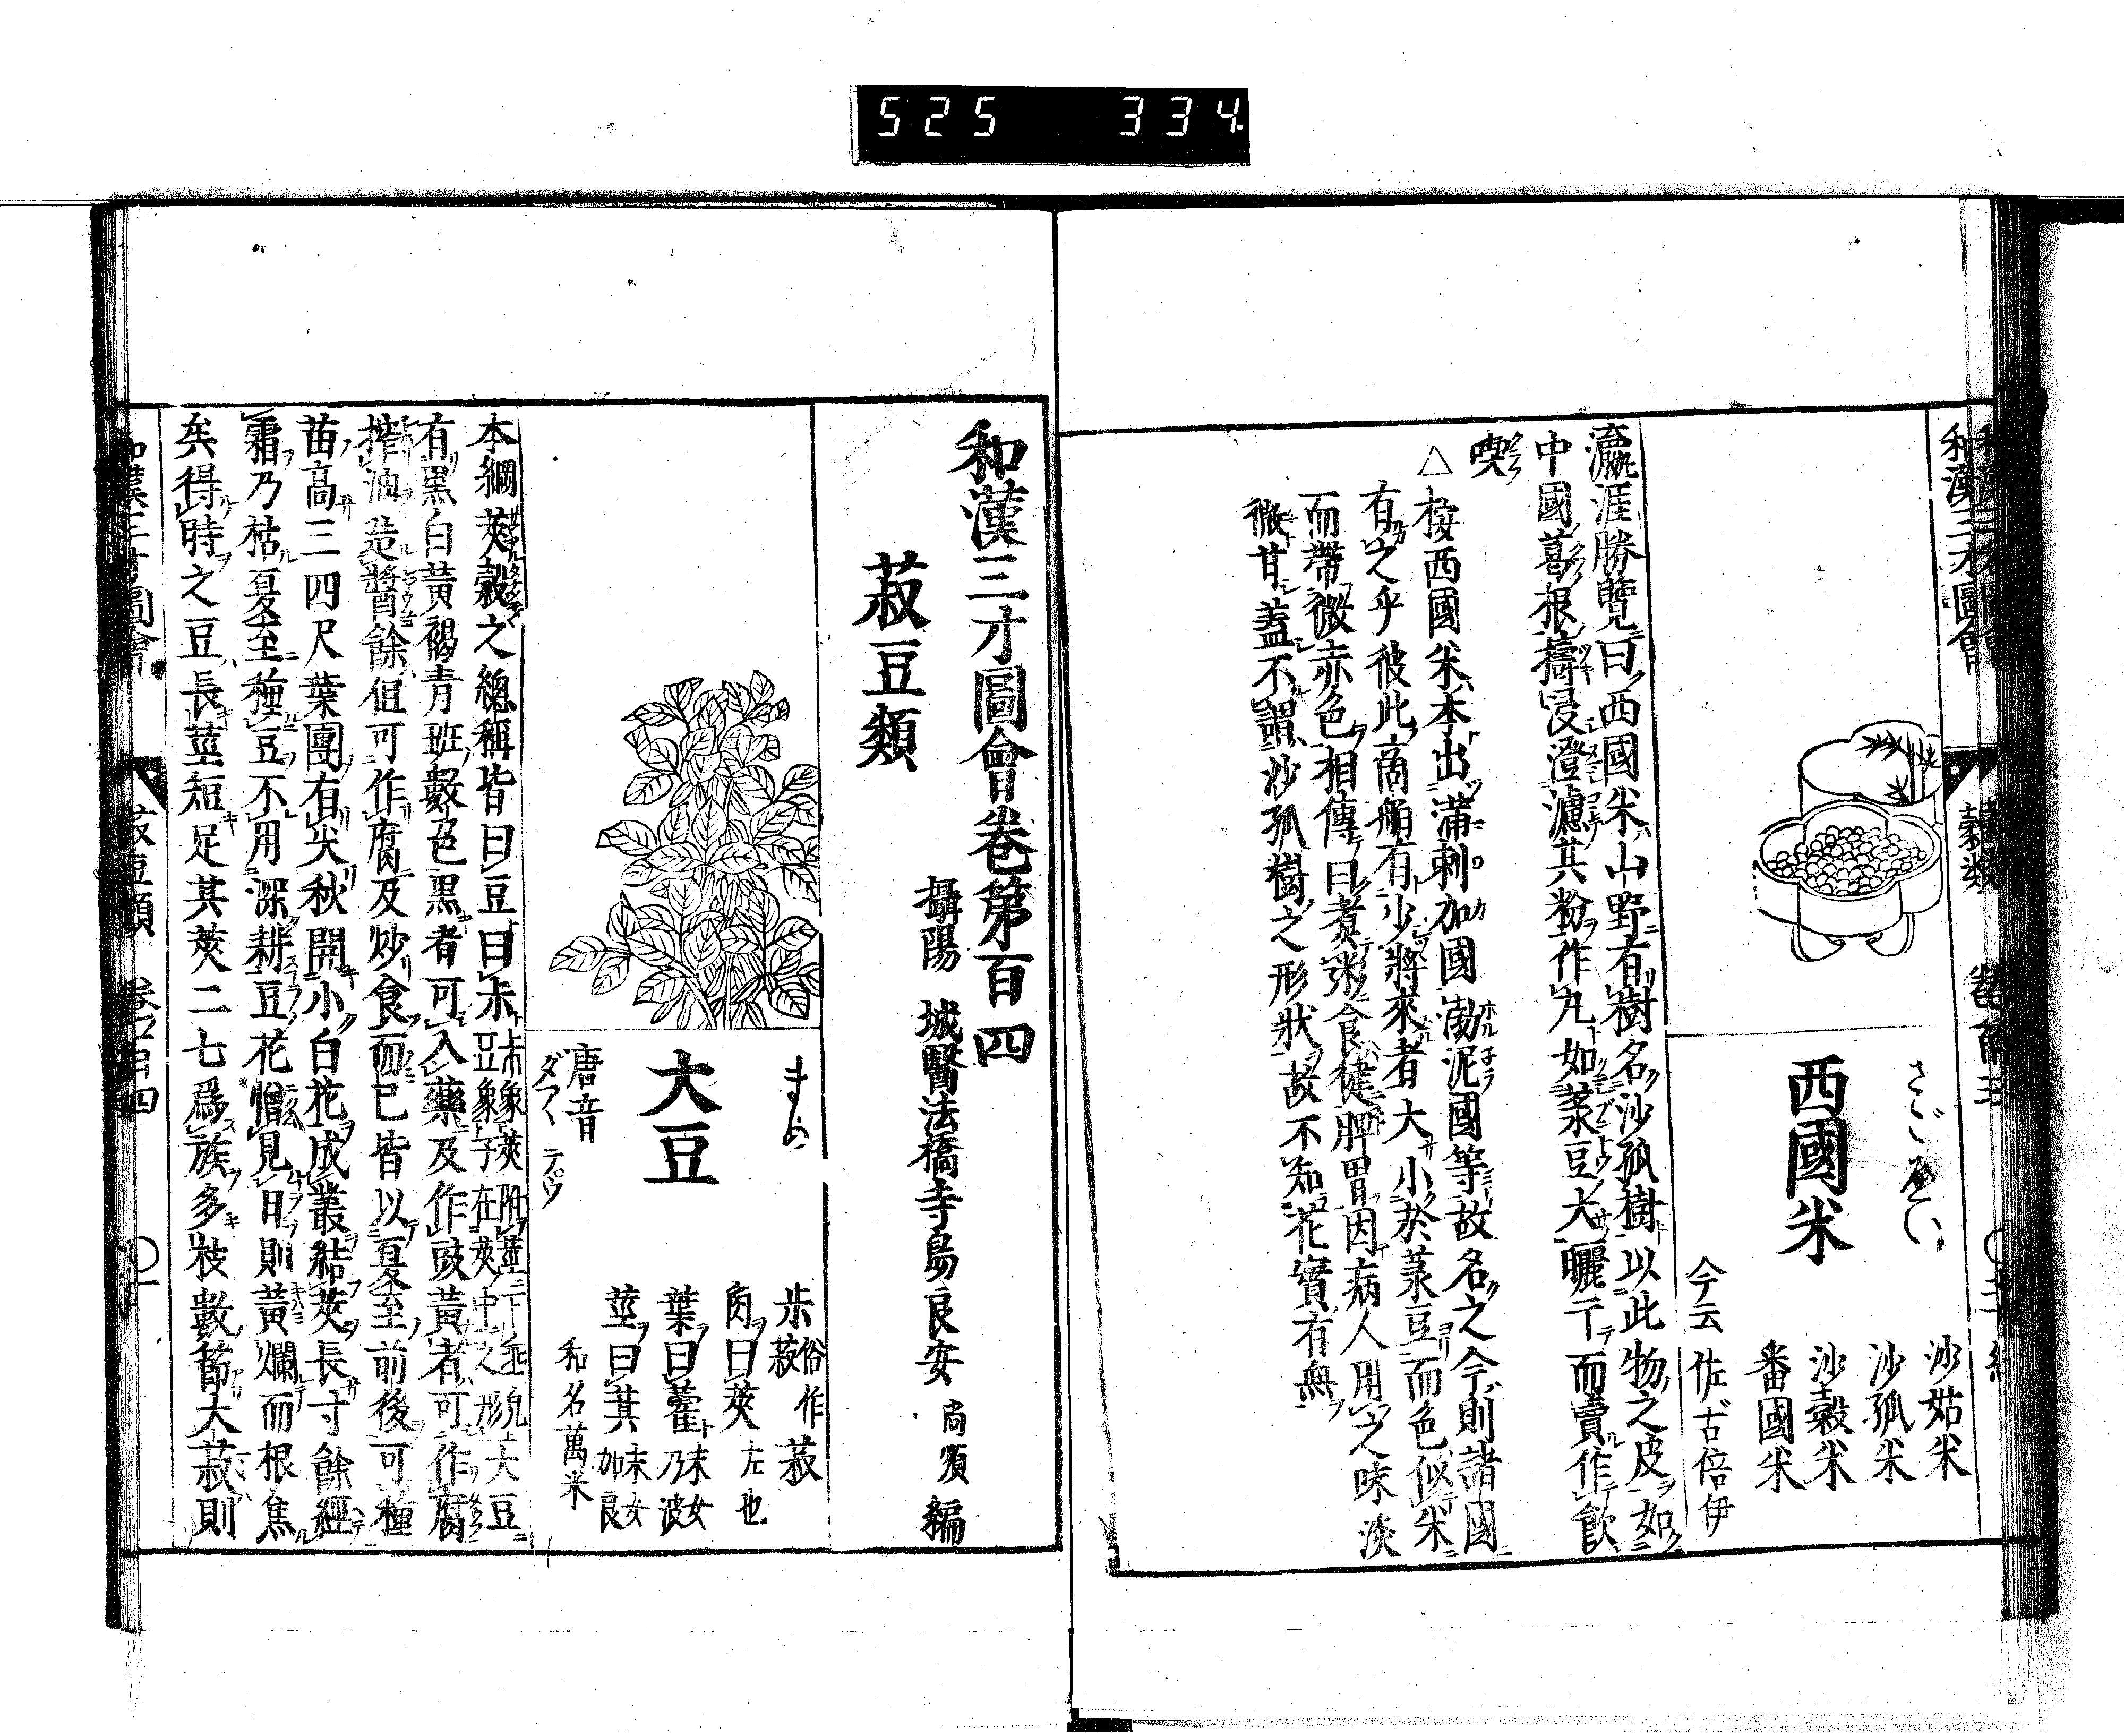 525 334
和漢三才圖會
穀類
さごべい
西國米
沙姑米
沙孤米
沙穀米
番國米
今云佐古倍伊
瀛涯勝覽曰西國米山野有樹名沙孤樹以此物之皮如
中國葛根擣浸澄濾其粉作丸如菉豆大曬干而賣作飲
喫
△按西國米本出蒲剌加國渤泥國等故名之今則諸國
有之乎彼此商舶有少將來者大小於菉豆而色似米
而帶微赤色相傳曰煑粥食健脾胃因病人用之味淡
微甘蓋不謂沙孤樹之形狀故不知花實有無
和漢三才圖會卷第百四
攝陽 城醫法橋寺島良安 尚順 編
菽豆類
まめ
大豆
唐音
ダアヽ テ゚ウ
尗 俗作菽
菽
角曰莢 左也
葉曰藿 末女乃波
莖曰萁 末女加良
和名萬米
本綱莢穀之總稱皆曰豆曰尗 尗象莢附莖下垂皃 豆象子在莢中之形 大豆
有黑白黃褐青班數色黑者可入藥及作豉黃者可作腐
搾油造醬餘但可作腐及炒食而已皆以夏至前後可種
苗高三四尺葉團有尖秋開小白花成叢結莢長寸餘經
霜乃枯夏至種豆不用深耕豆花憎見日則黃爛而根焦
矣得時之豆長莖短足其莢二七爲族多枝數節大菽則
和漢三才圖會
菽豆類 卷百四